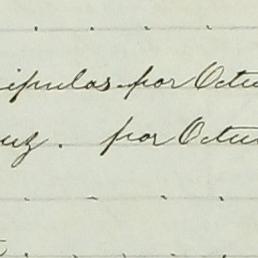 ipulas por Octu
uz. por Octu